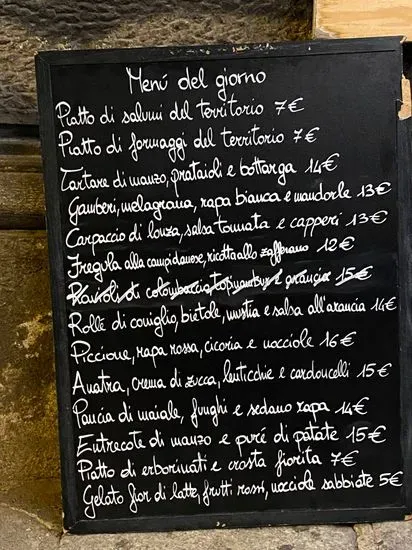 Menú del giorno
Piatto di salumi del territorio 7€
Piatto di formaggi del territorio 7€
Tartare di manzo, prataioli e bottarga 14€
Gamberi, melagrana, rapa bianca e mandorle 13€
Carpaccio di lonza, salsa tonnata e capperi 13€
Fregula alla campidanese, ricotta allo zafferano 12€
Ravioli di colombaccio, topinambur e arancia 15€
Rollè di coniglio, bietole, mustia e salsa all'arancia 14€
Piccione, rapa rossa, cicoria e nocciole 16€
Anatra, crema di zucca, lenticchie e cardoncelli 15€
Pancia di maiale, funghi e sedano rapa 14€
Entrecote di manzo e puré di patate 15€
Piatto di erborinati e crosta fiorita 7€
Gelato fior di latte, frutti rossi, nocciole sabbiate 5€